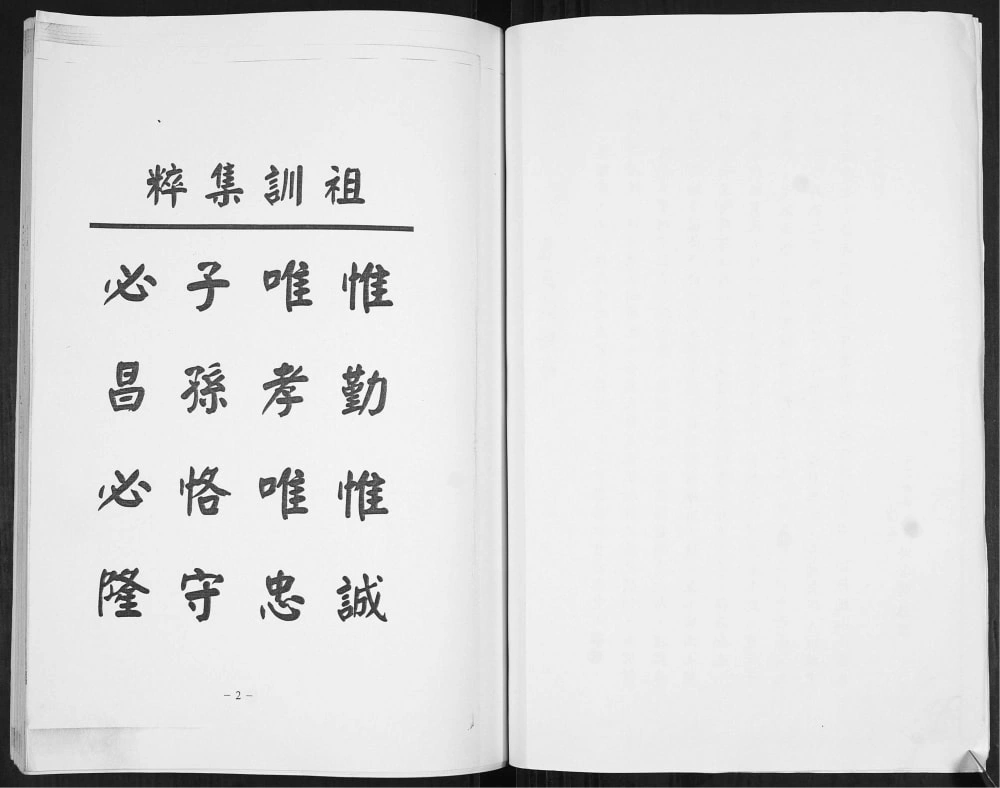 祖訓集粹
惟勤惟誠
唯孝唯忠
子孫恪守
必昌必隆
- 2 -